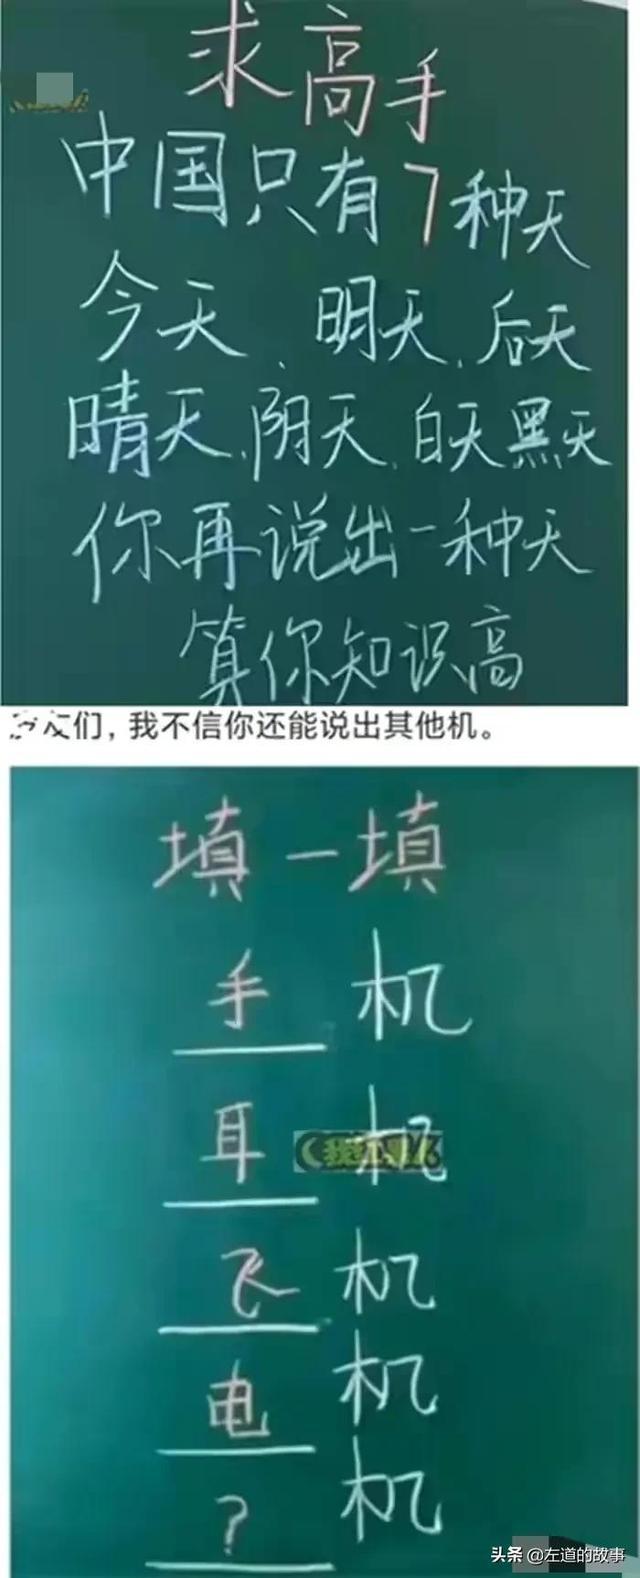 求高手
中国只有7种天
今天、明天、后天
晴天、阴天、白天黑天
你再说出一种天
算你知识高
们，我不信你还能说出其他机。
填一填
手机
耳机
飞机
电机
？机
头条 @左道的故事